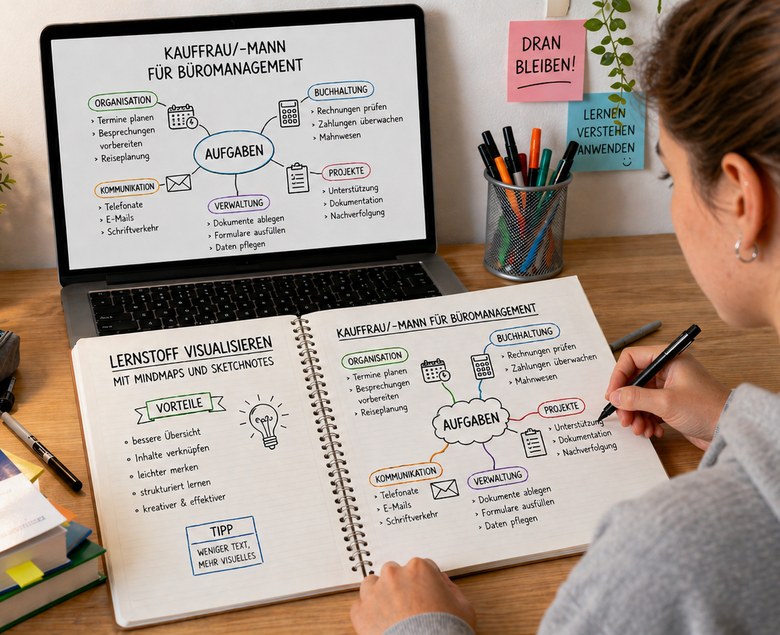 KAUFFRAU/-MANN
FÜR BÜROMANAGEMENT
ORGANISATION
> Termine planen
> Besprechungen
vorbereiten
> Reiseplanung
BUCHHALTUNG
> Rechnungen prüfen
> Zahlungen überwachen
> Mahnwesen
AUFGABEN
KOMMUNIKATION
> Telefonate
> E-Mails
> Schriftverkehr
VERWALTUNG
> Dokumente ablegen
> Formulare ausfüllen
> Daten pflegen
PROJEKTE
> Unterstützung
> Dokumentation
> Nachverfolgung
DRAN
BLEIBEN!
LERNEN
VERSTEHEN
ANWENDEN
LERNSTOFF VISUALISIEREN
MIT MINDMAPS UND SKETCHNOTES
VORTEILE
bessere Übersicht
Inhalte verknüpfen
leichter merken
strukturiert lernen
kreativer & effektiver
TIPP
WENIGER TEXT,
MEHR VISUELLES
KAUFFRAU/-MANN FÜR BÜROMANAGEMENT
ORGANISATION
> Termine planen
> Besprechungen
vorbereiten
> Reiseplanung
BUCHHALTUNG
> Rechnungen prüfen
> Zahlungen überwachen
> Mahnwesen
AUFGABEN
PROJEKTE
> Unterstützung
> Dokumentation
> Nachverfolgung
KOMMUNIKATION
> Telefonate
> E-Mails
> Schriftverkehr
VERWALTUNG
> Dokumente ablegen
> Formulare ausfüllen
> Daten pflegen